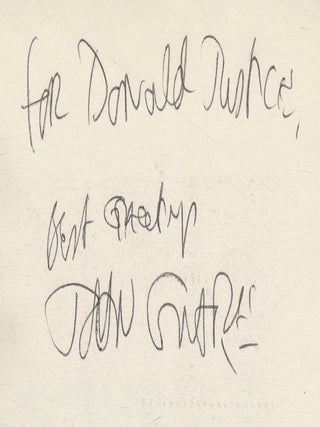 for Donald Justice,
Best Greetings
John Guare